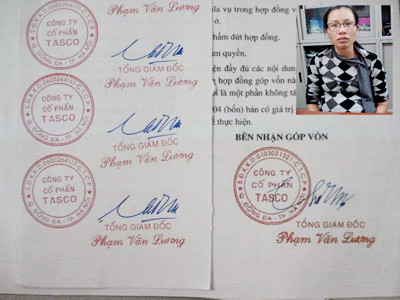 Phạm Văn Lương
CÔNG TY
CỔ PHẦN
TASCO
Q. ĐỐNG ĐA - TP. HÀ NỘI
TỔNG GIÁM ĐỐC
Phạm Văn Lương
CÔNG TY
CỔ PHẦN
TASCO
Q. ĐỐNG ĐA - TP. HÀ NỘI
TỔNG GIÁM ĐỐC
Phạm Văn Lương
CÔNG TY
CỔ PHẦN
TASCO
Q. ĐỐNG ĐA - TP. HÀ NỘI
TỔNG GIÁM ĐỐC
Phạm Văn Lương
ĩa vụ trong hợp đồng v
hấm dứt hợp đồng.
ẩm quyền.
iện đầy đủ các nội dun
hợp đồng góp vốn nà
i là một phần không tá
04 (bốn) bản có giá trị
ể thực hiện.
BÊN NHẬN GÓP VỐN
CÔNG TY
CỔ PHẦN
TASCO
Q. ĐỐNG ĐA - TP. HÀ NỘI
TỔNG GIÁM ĐỐC
Phạm Văn Lương